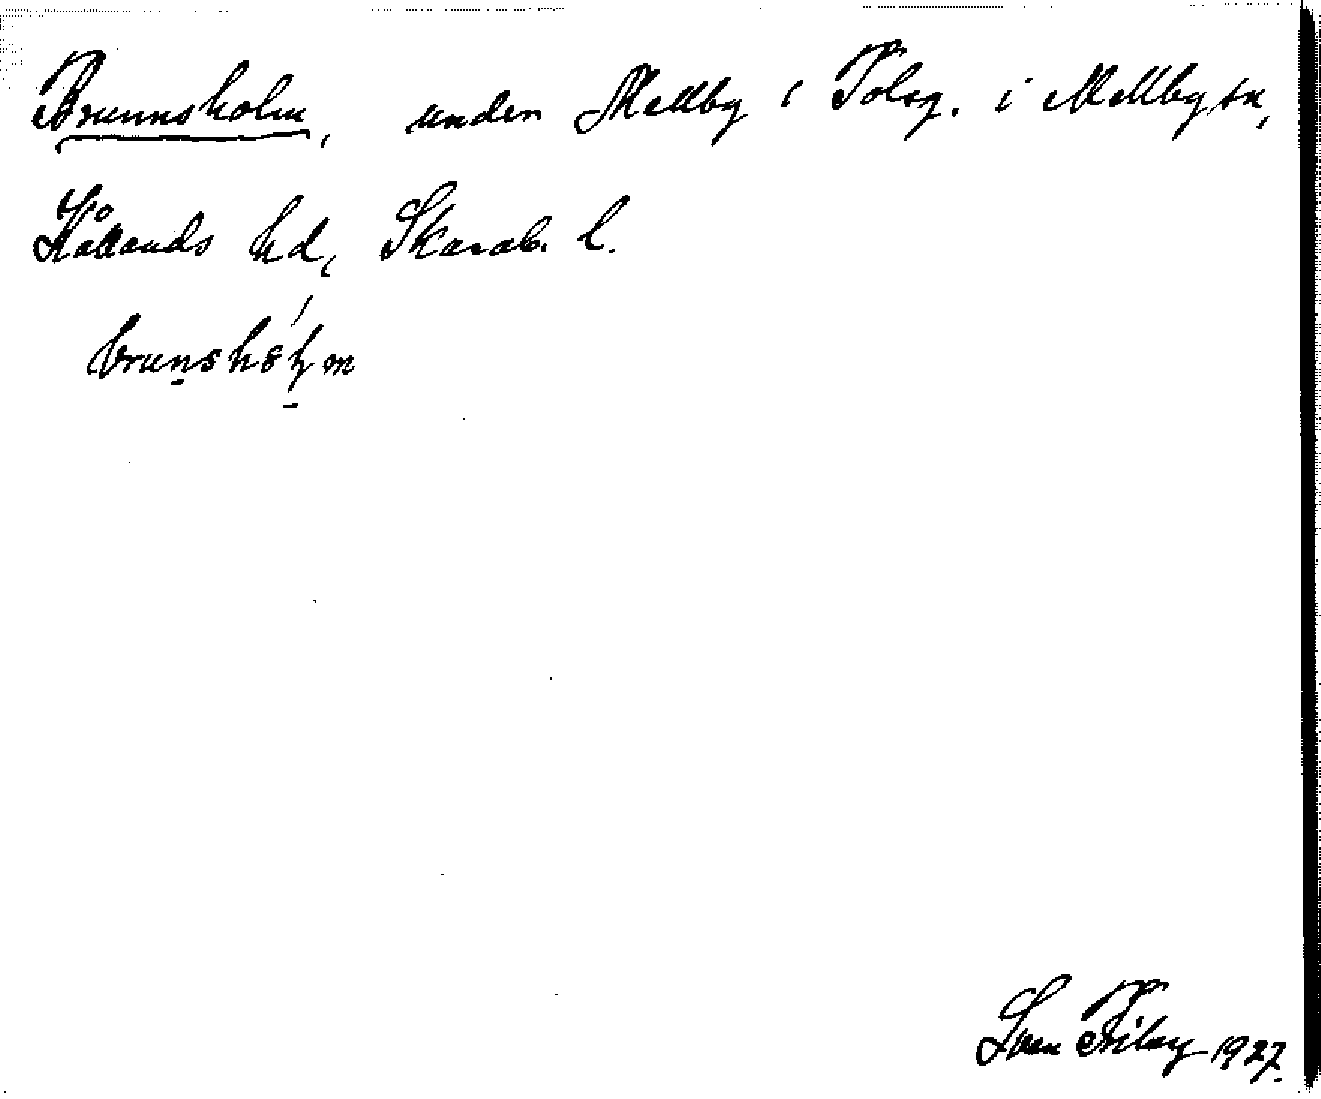 Brunnsholm, under Mellby i Tolsg. i Mellby sn,
Kållands hd, Skarab. l.
brunshólm
Sven Friberg 1927.